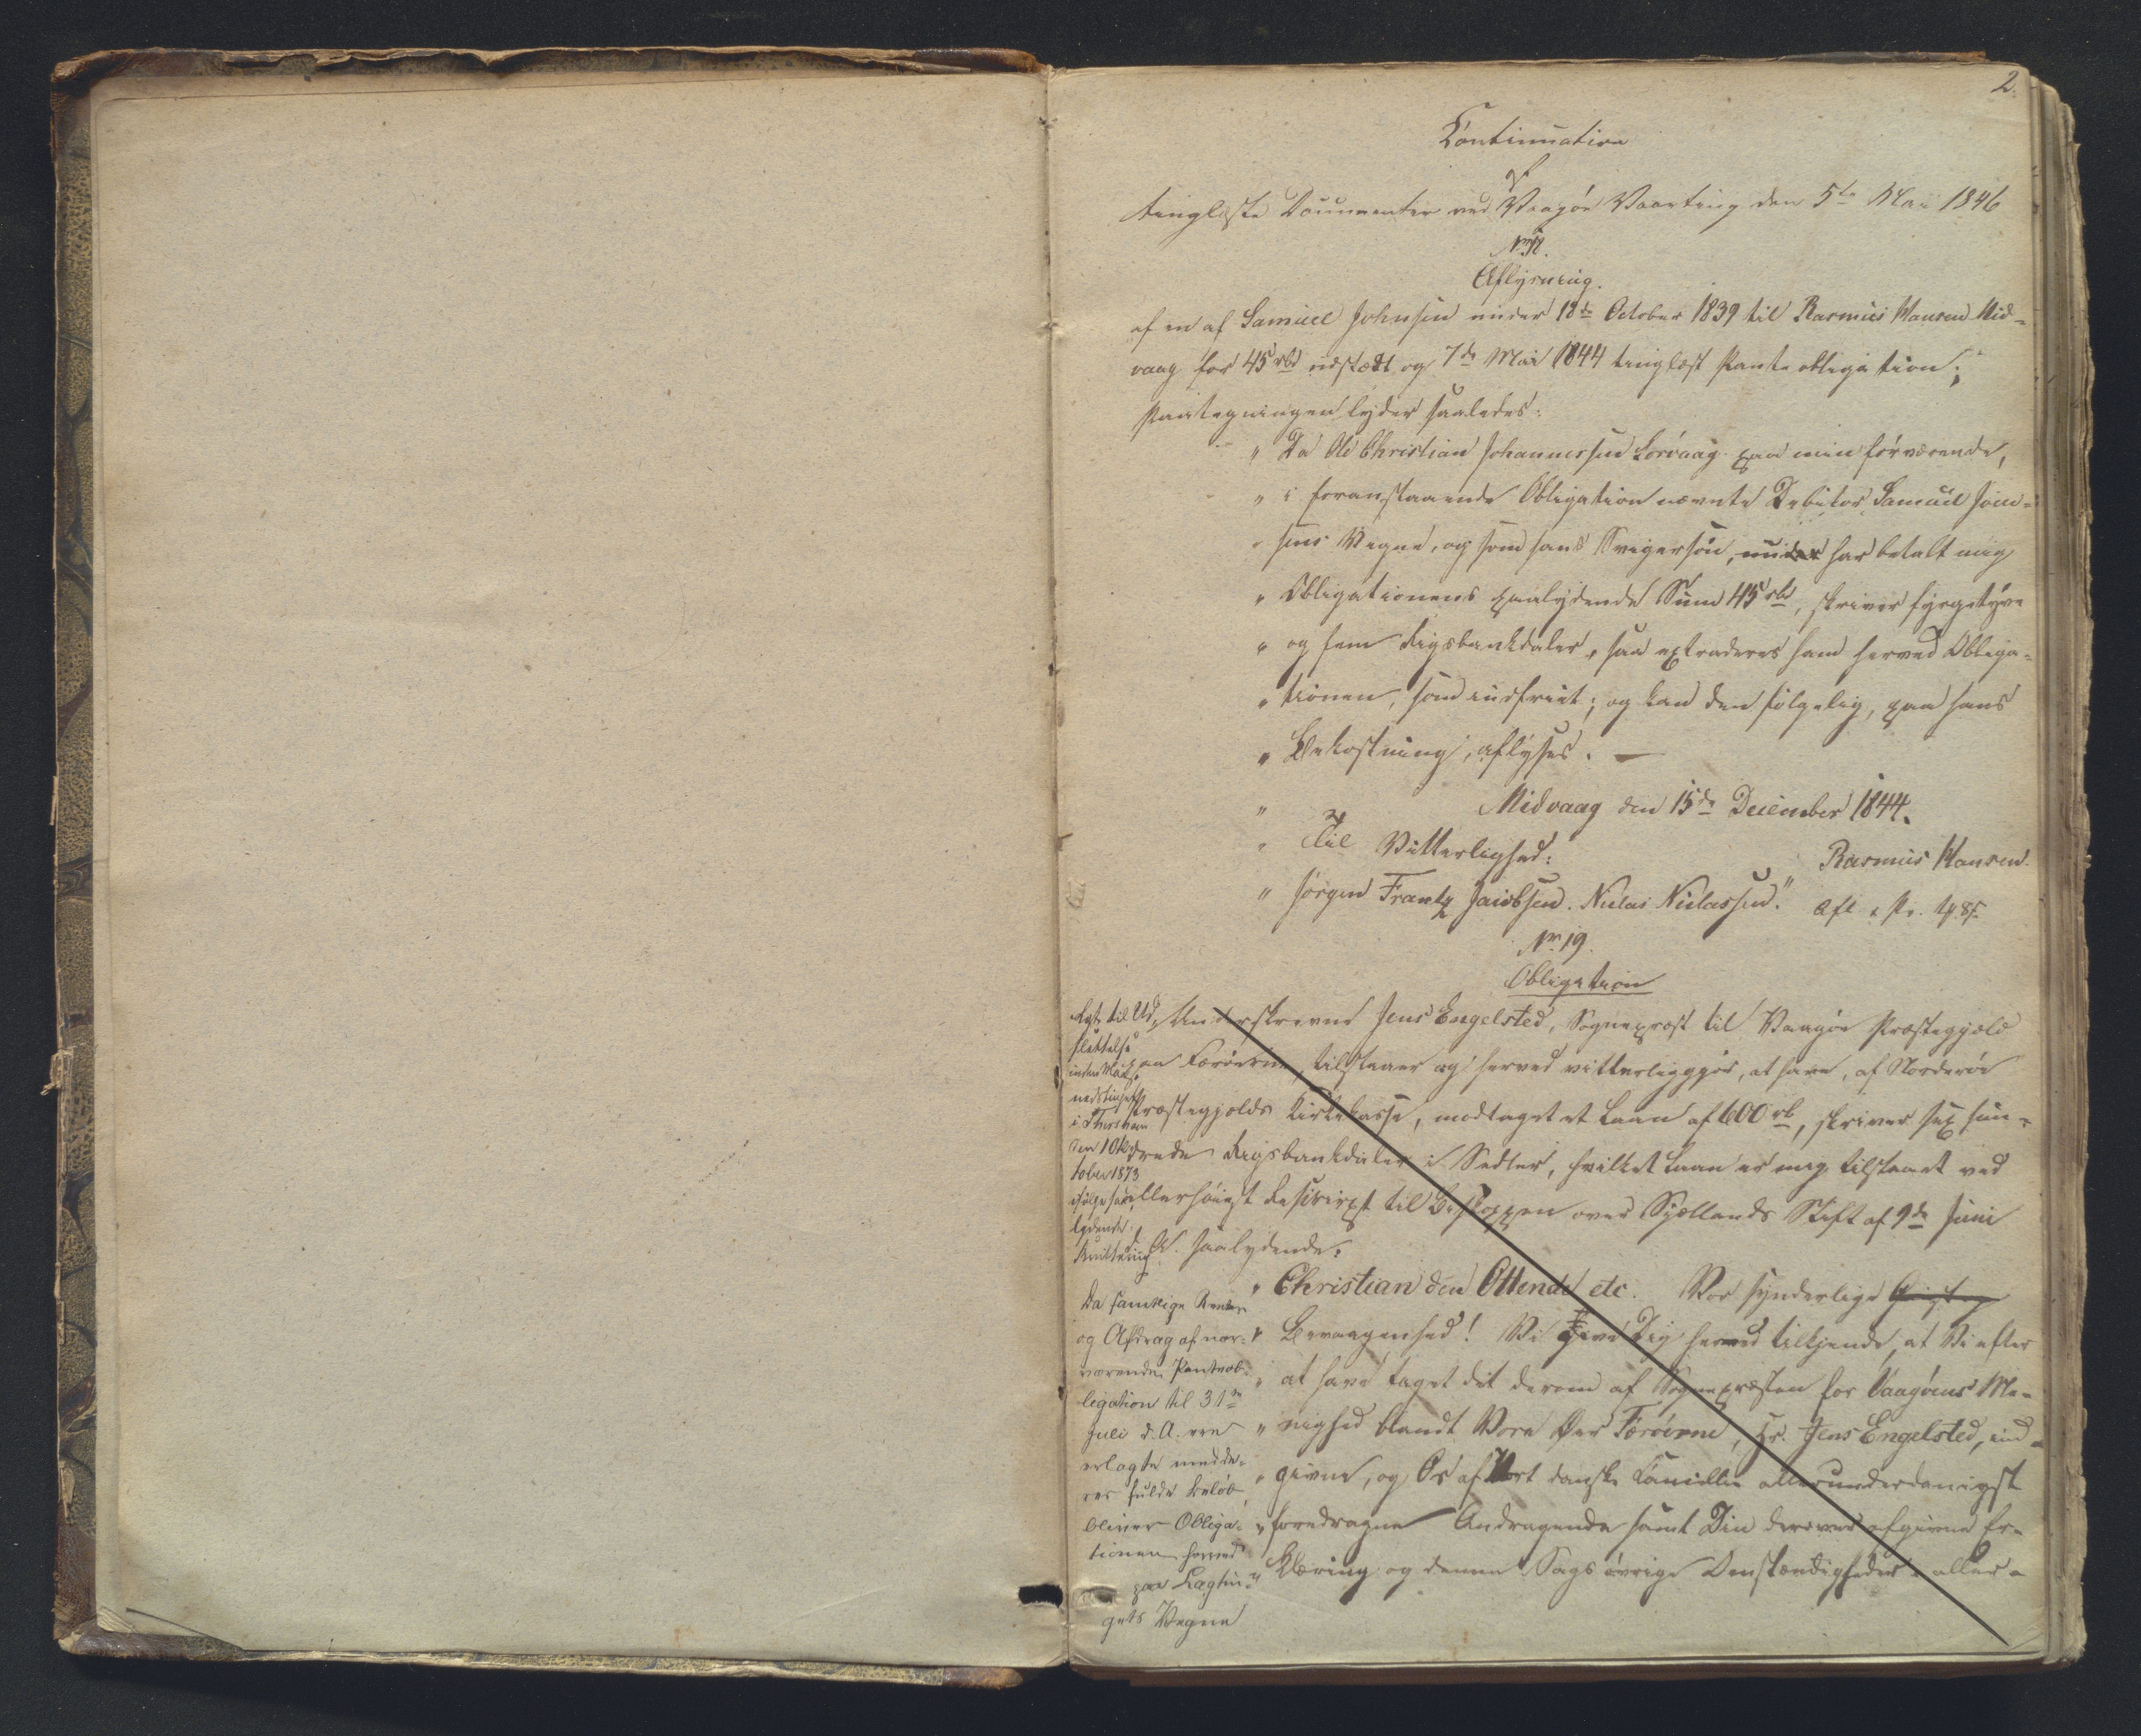 2.
Continuation
af
tinglæste Documenter ved Vaagöe Vaarting den 5te Mai 1846
Aflysning.
af en af Samuel Johnsen under 18de October 1839 til Rasmus Hansen Mid-
vaag for 45 rbd udstædt og 7de Mai 1844 tinglæst Panteobligation;
Paategningen lyder saaledes:
" Da Ole Christian Johannessen Sørvaag paa min forværende,
" i foranstaaende Obligation nævnte Debitor Samuel Joen-
" sens Vegne, og som hans Svigersön, under har betalt mig
" Obligationens paalydende Sum 45 rbd, skriver fyrgetyve
" og fem Rigsbankdaler, saa extraderes ham herved Obliga-
" tionen, som indfriet; og kan den fölgelig, paa hans
" Bekostning, aflyses. —
" Midvaag den 15de December 1844.
" Til Vitterlighed: Rasmus Hansen.
" Jörgen Frantz Jacobsen. Niclas Niclassen."
No 19.
Obligation
Underskrevne Jens Engelsted, Sognepræst til Vaagöe Præstegjæld
paa Færöerne, tilstaaer og herved vitterliggjör, at have, af Norderöe
Præstegjelds Kirkekasse, modtaget et Laan af 600 rb, skriver sex hun-
drede Rigsbankdaler i Sedler, hvilket Laan er mig tilstaaet ved
allerhöiest Rescript til Biskoppen over Sjællands Stift af 9de Juni
saalydende:
" Christian den Ottende etc. Vor synderlige
" Bevaagenhed! Vi give Dig herved tilkjende, at Vi efter
" at have taget dit derom af Sognepræsten for Vaagöens Me-
" nighed blandt Vore Øer Færöerne, Hr. Jens Engelsted, ind-
" givne, og Os af Vort danske Cancellie allerunderdanigst
" foredragne Andragende samt Din derover afgivne Er-
" klæring og denne Sags övrige Omstændigheder i aller-
til Ud-
slettelse
i Thorshavn
den 1 Ok
tober 1873
ifölge saa-
lydende
Kvittering
Da samtlige Renter
og Afdrag af nær-
værende Panteob-
ligation til 31te
Juli d. A. ere
erlagte med de-
res fulde Beløb,
bliver Obliga-
tionen herved
paa Lagtin-
gets Vegne